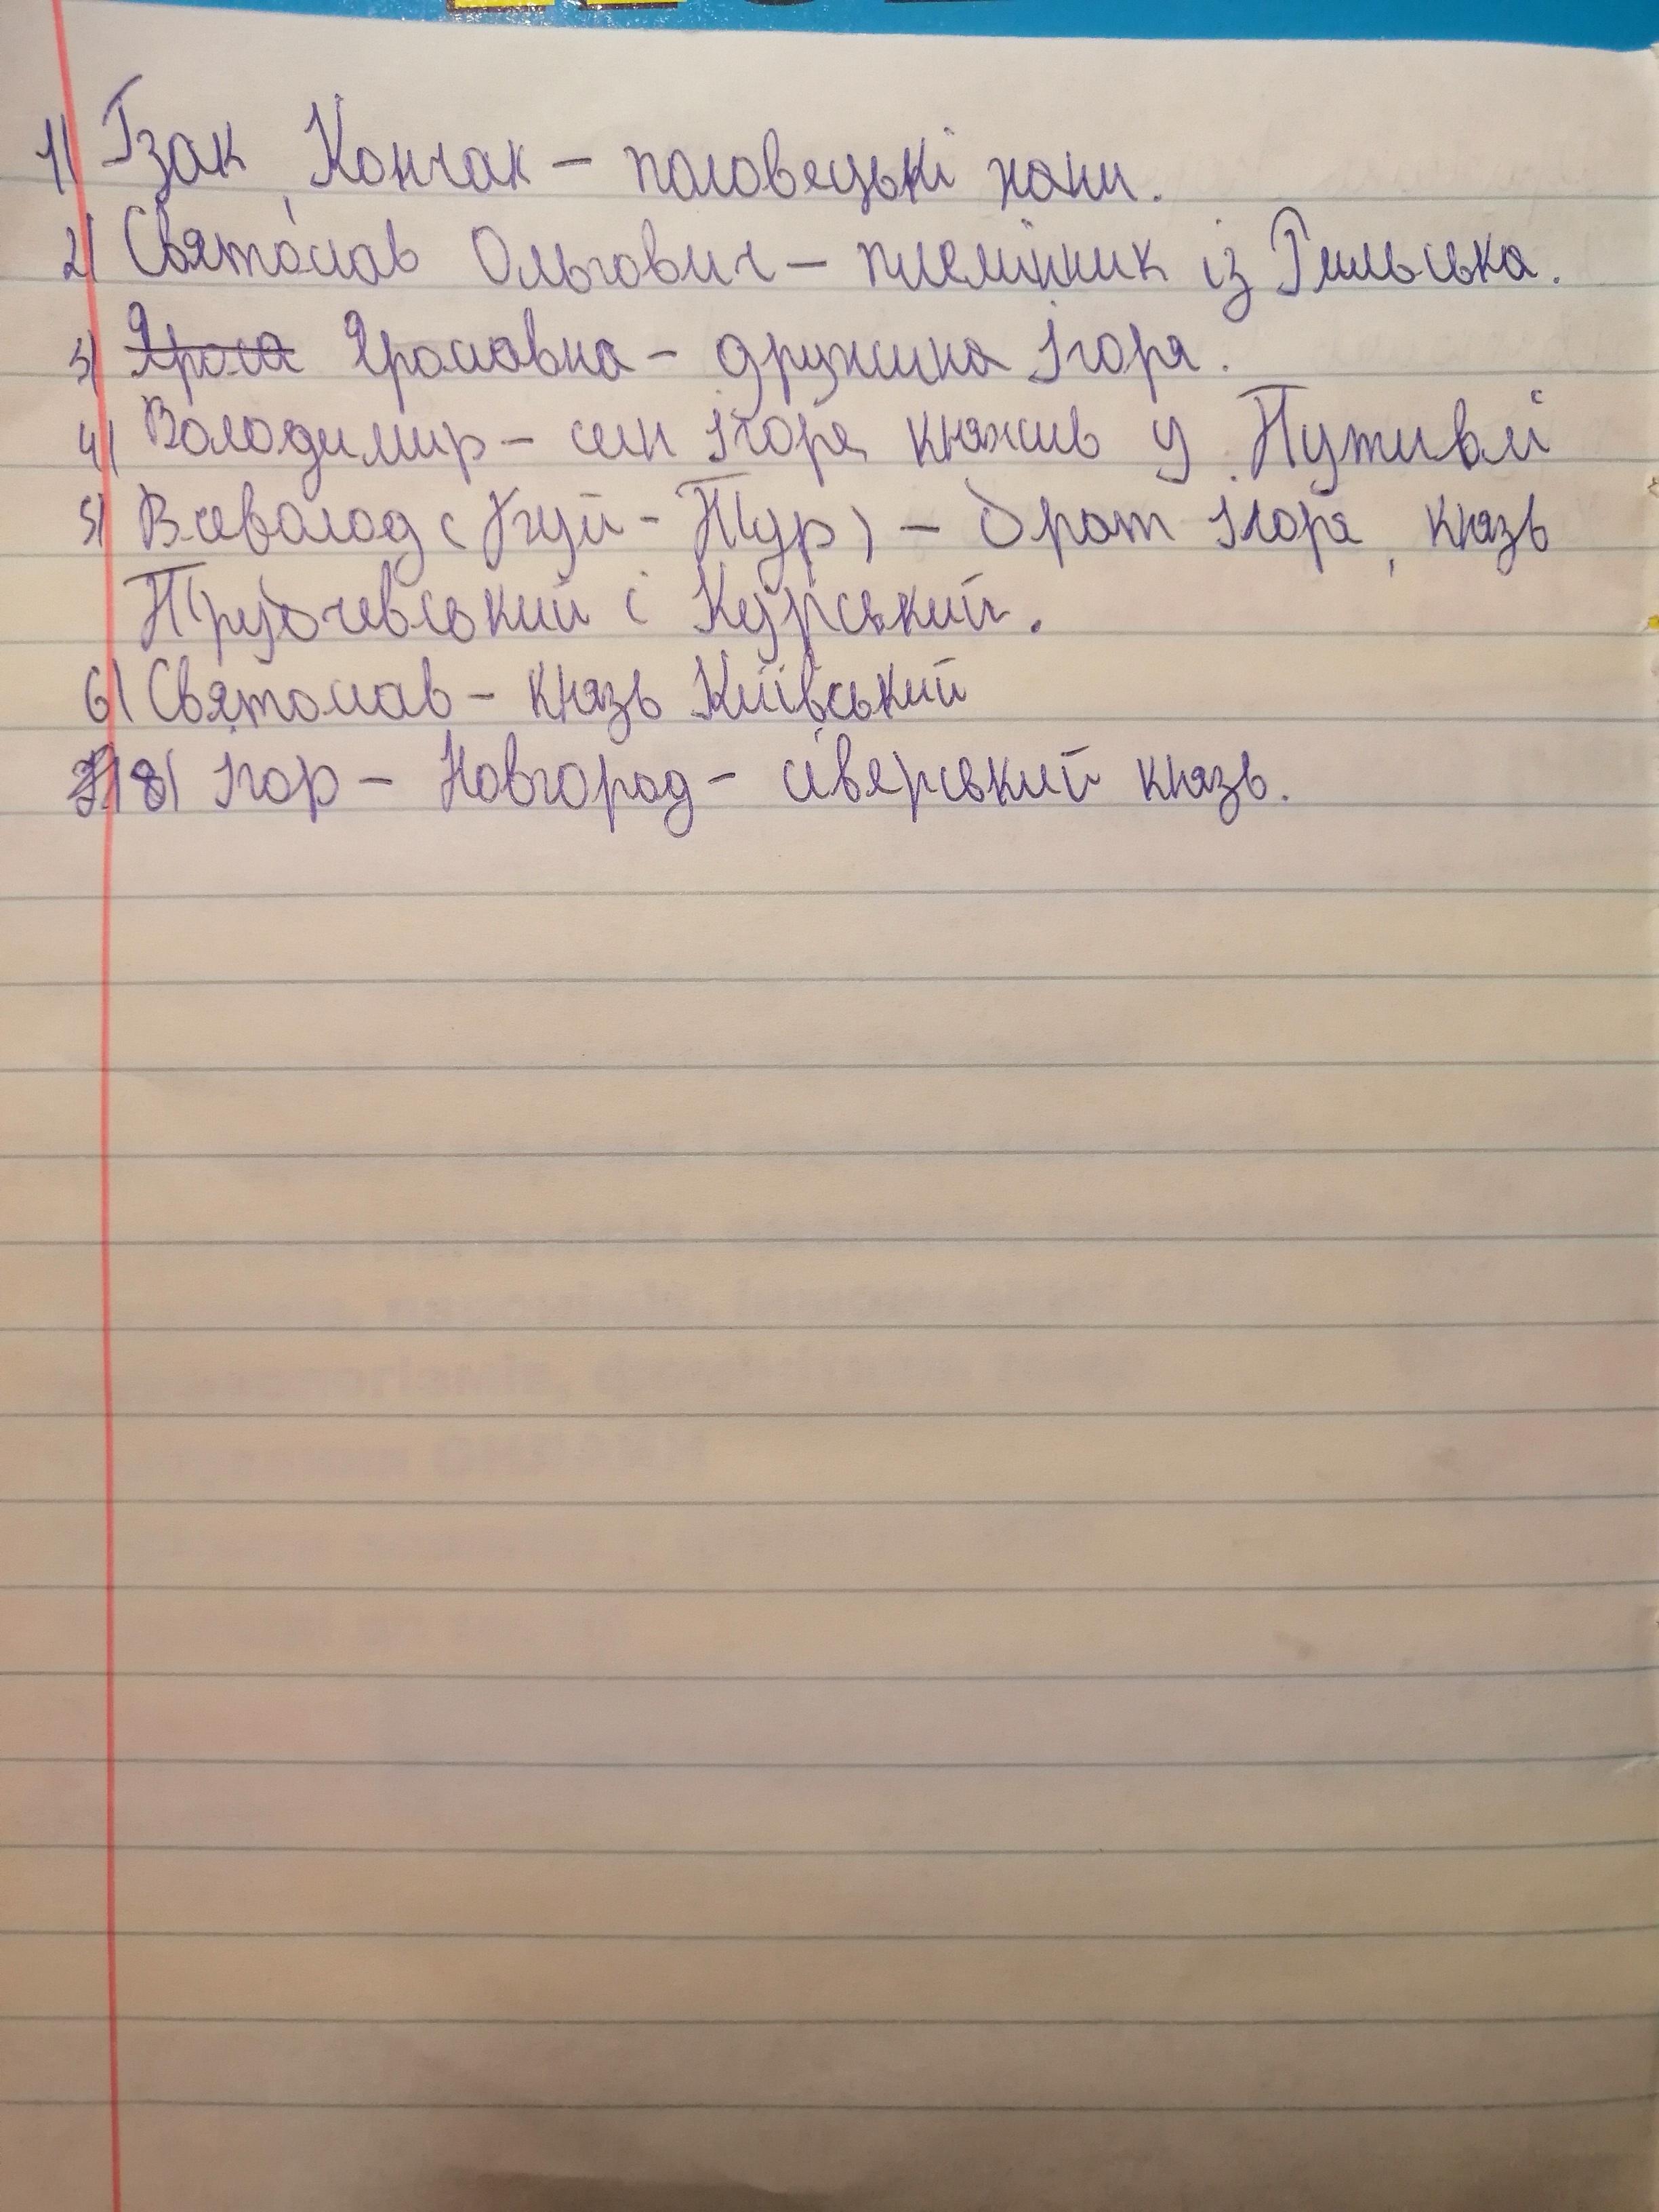 1) Гзак, Кончак – половецькі хани.
2) Святослав Ольгович – племінник із Рильська.
3) Яросл Ярославна – дружина Ігоря.
4) Володимир – син Ігоря, княжив у Путивлі
5) Всеволод (Буй - Тур) – брат Ігоря, князь
Трубчевський і Курський.
6) Святослав – князь Київський
8) Ігор – Новгород - сіверський князь.